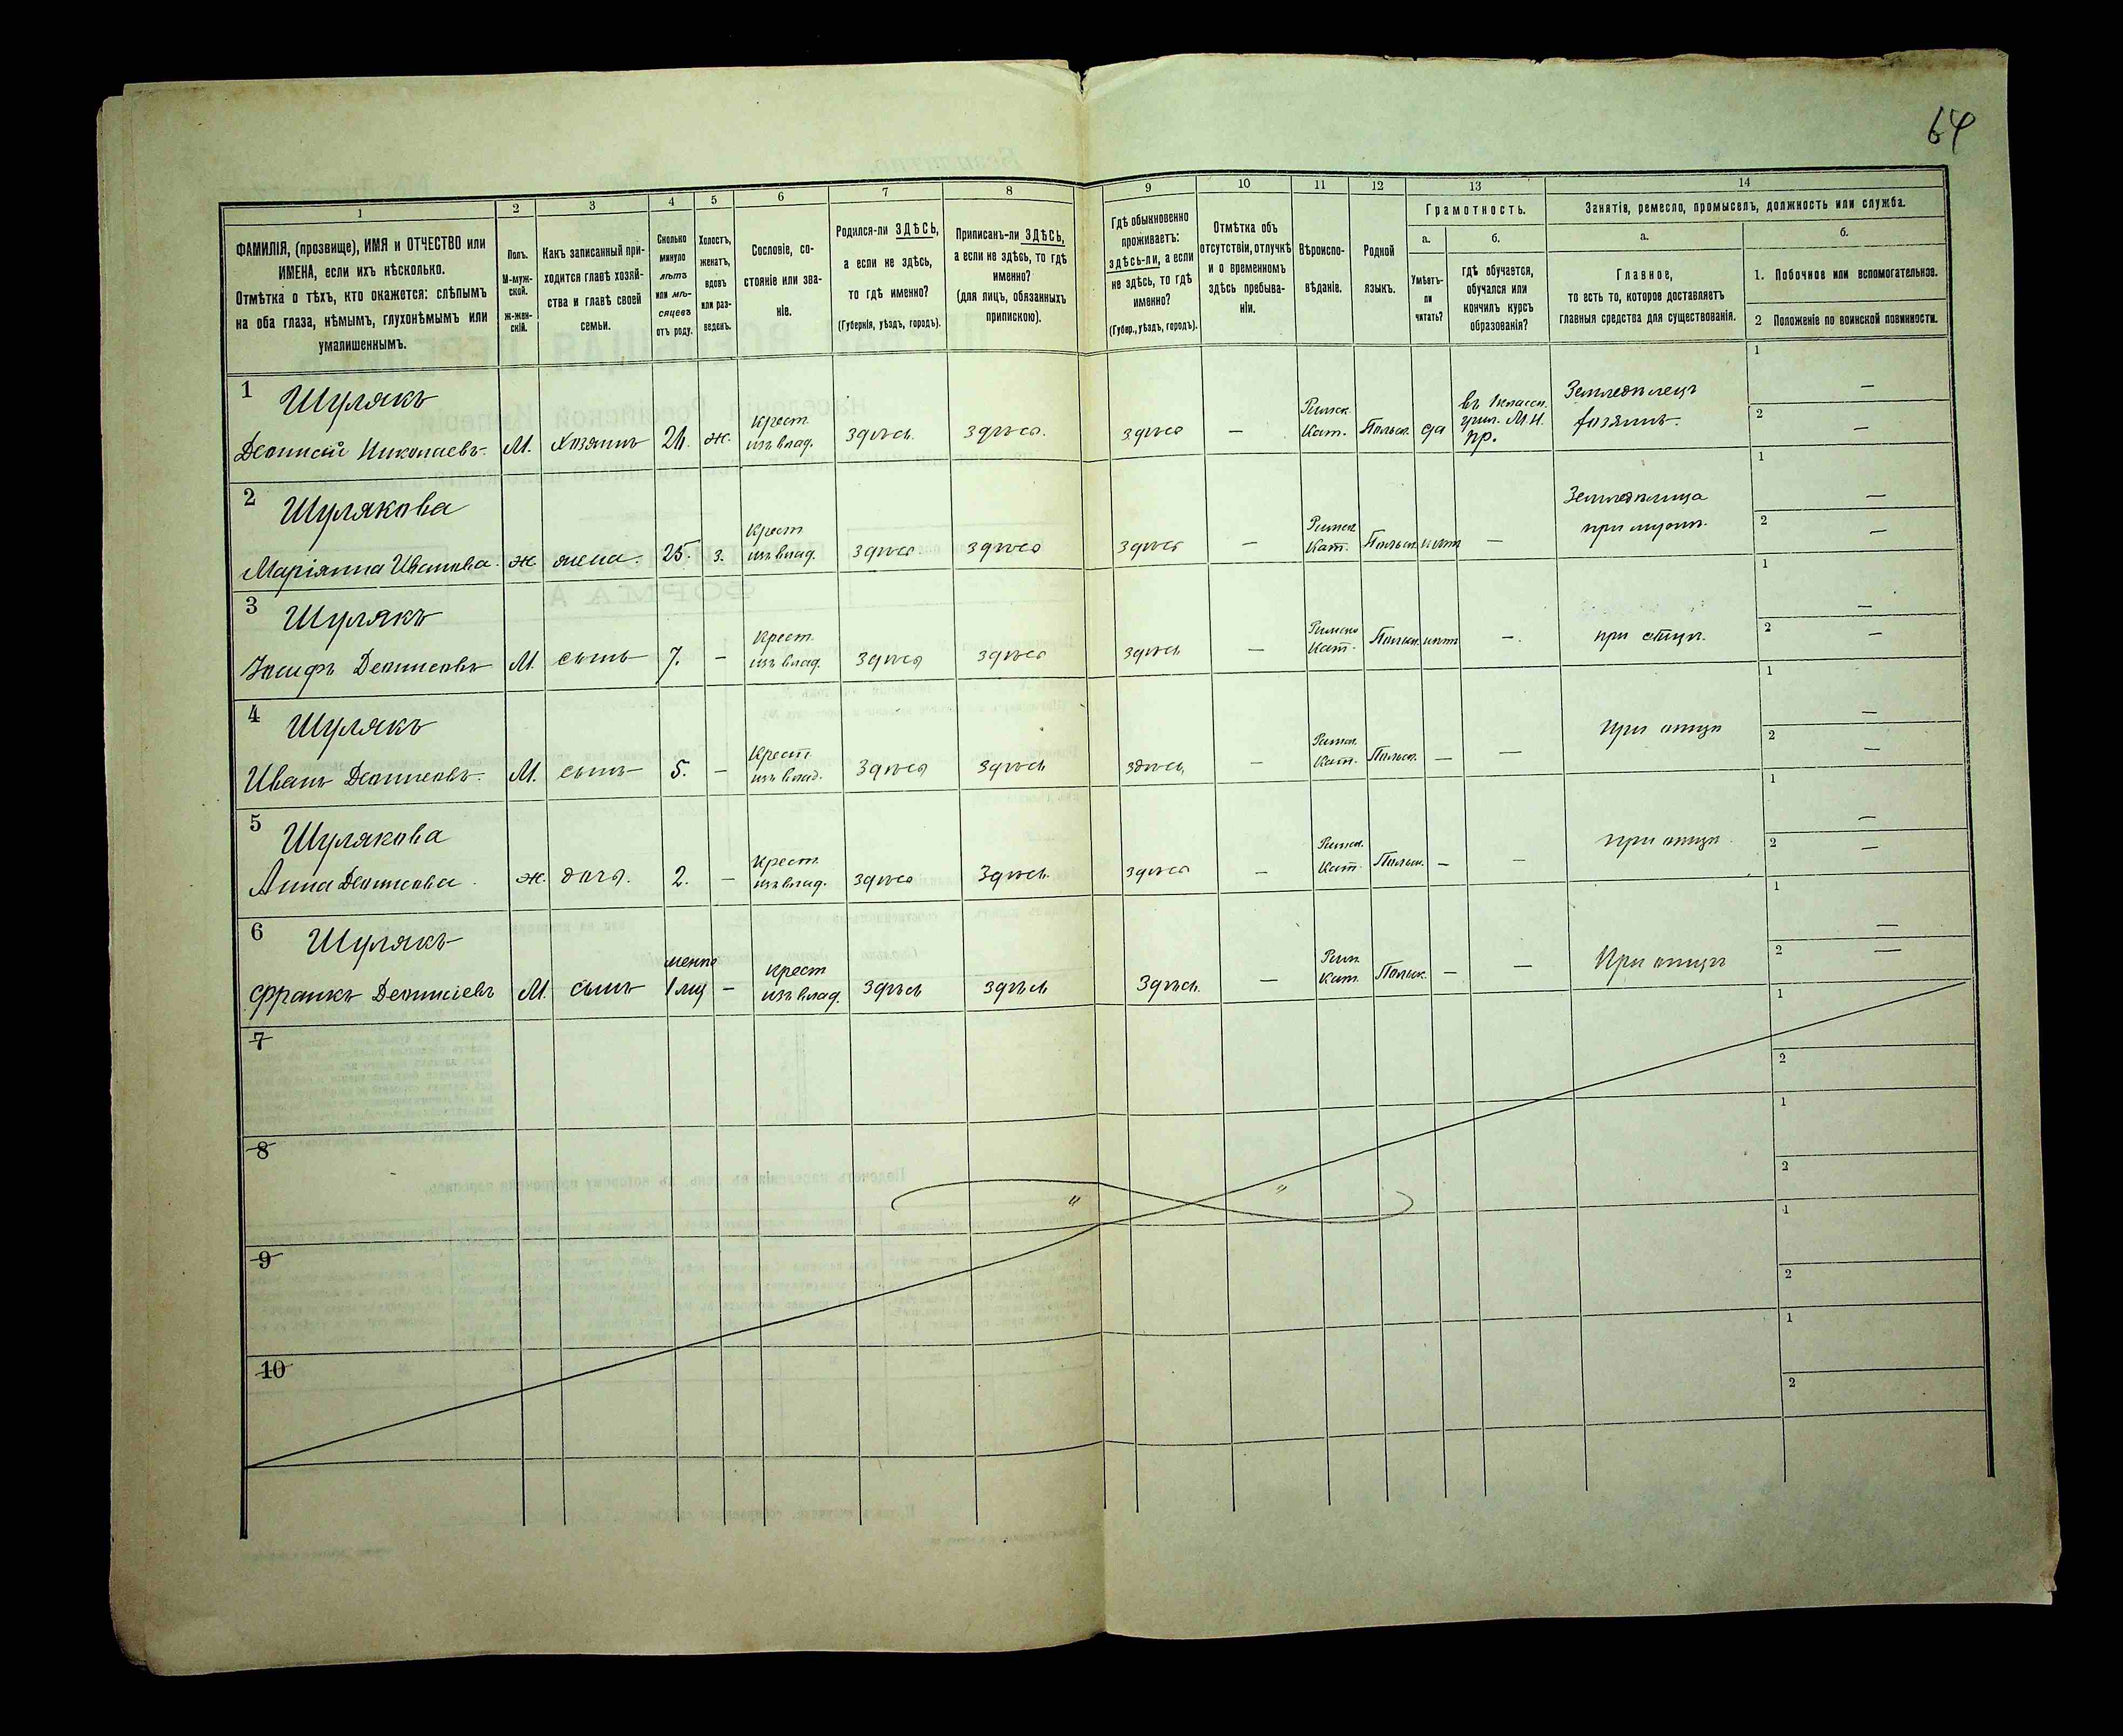 64
1
2
3
4
5
6
7
8
9
10
11
12
13
14
ФАМИЛІЯ, (прозвище), ИМЯ и ОТЧЕСТВО или
ИМЕНА, если ихъ нѣсколько.
Отмѣтка о тѣхъ, кто окажется: слѣпымъ
на оба глаза, нѣмымъ, глухонѣмымъ или
умалишеннымъ.
Полъ.
М-муж-
ской.
ж-жен-
скій.
Какъ записанный при-
ходится главѣ хозяй-
ства и главѣ своей
семьи.
Сколько
минуло
лѣтъ
или мѣ-
сяцевъ
отъ роду.
Холостъ,
женатъ,
вдовъ
или раз-
веденъ.
Сословіе, со-
стояніе или зва-
ніе.
Родился-ли ЗДѢСЬ,
а если не здѣсь,
то гдѣ именно?
(Губернія, уѣздъ, городъ).
Приписанъ-ли ЗДѢСЬ,
а если не здѣсь, то гдѣ
именно?
(для лицъ, обязанныхъ
припискою).
Гдѣ обыкновенно
проживаетъ:
здѣсь-ли, а если
не здѣсь, то гдѣ
именно?
(Губер., уѣздъ, городъ).
Отмѣтка объ
отсутствіи, отлучкѣ
и о временномъ
здѣсь пребыва-
ніи.
Вѣроиспо-
вѣданіе.
Родной
языкъ.
Грамотность.
а.
Умѣетъ-
ли
читать?
б.
гдѣ обучается,
обучался или
кончилъ курсъ
образованія?
Занятія, ремесло, промыселъ, должность или служба.
а.
Главное,
то есть то, которое доставляетъ
главныя средства для существованія.
б.
1. Побочное или вспомогательное.
2 Положеніе по воинской повинности.
1 Шулякъ
Деонисій Николаевъ М. Хозяинъ ж. Крест. изъ влад. здѣсь. здѣсь. здѣсь — Римск. Кат. Польск. да въ 1 классн. учил. М. Н. пр. Земледѣлецъ хозяинъ. 1 — 2 —
2 Шулякова
Маріянна Иванова ж жена 25. з. Крест. изъ влад. здѣсь здѣсь здѣсь — Римск. Кат. Польск. нѣтъ — Земледѣлица при мужѣ. 1 — 2 —
3 Шулякъ
Іосифъ Деонисовъ М. сынъ 7. — Крест. изъ влад. здѣсь здѣсь здѣсь — Римско Кат. Польск. нѣтъ — при отцѣ. 1 — 2 —
4 Шулякъ
Иванъ Деонисовъ М. сынъ 5. — Крест. изъ влад. здѣсь здѣсь здѣсь — Римск. Кат. Польск. — — при отцѣ 1 — 2 —
5 Шулякова
Анна Деонисова ж. дочь. 2. — Крест. изъ влад. здѣсь здѣсь. здѣсь — Римск. Кат. Польск. — — при отцѣ 1 — 2 —
6 Шулякъ
Франкъ Деонисіевъ М. сынъ менѣе 1 мц — Крест изъ влад. здѣсь здѣсь здѣсь. — Рим. Кат. Польск. — — При отцѣ 1 — 2 —
7 1 2
8 1 2
" "
9 1 2
10 1 2